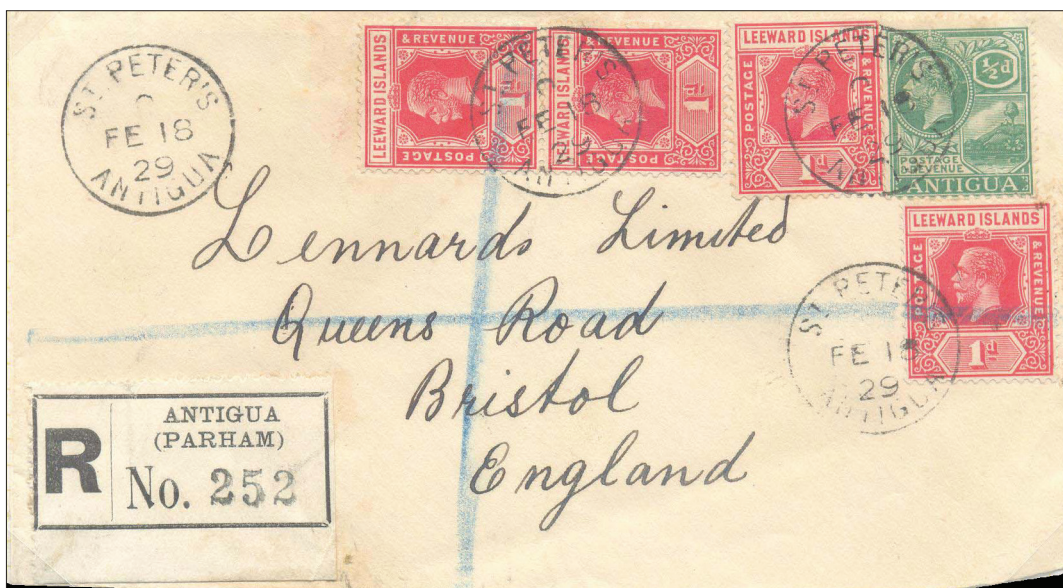 ST. PETER'S
FE 18
29
ANTIGUA
LEEWARD ISLANDS
& REVENUE
1d
POSTAGE
LEEWARD ISLANDS
& REVENUE
1d
POSTAGE
ST. PETER'S
FE 18
29
ANTIGUA
LEEWARD ISLANDS
POSTAGE
& REVENUE
1d
½d
POSTAGE
& REVENUE
ANTIGUA
PETER'S
FE 18
LEEWARD ISLANDS
POSTAGE
& REVENUE
1d
ST. PETER
FE 18
29
ANTIGUA
Lennards Limited
Queens Road
Bristol
England
R
ANTIGUA
(PARHAM)
No. 252